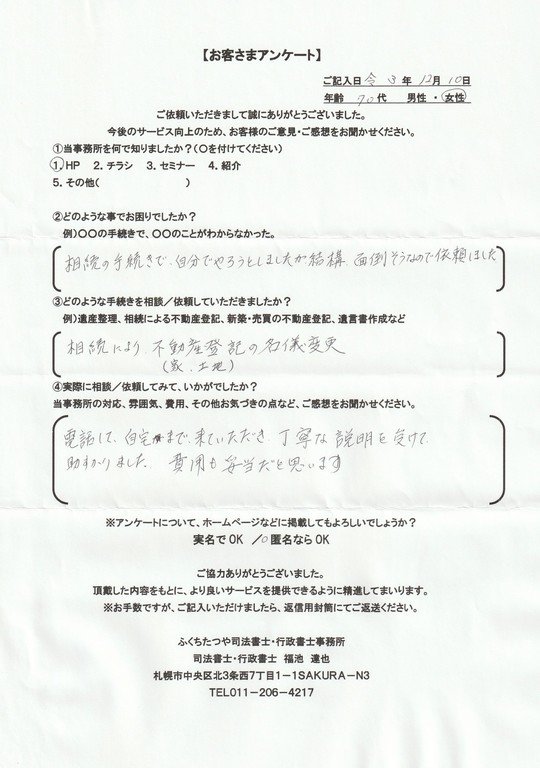 【お客さまアンケート】
ご記入日 令 3 年 12月 10日
年齢 70代 男性 ・ 女性
ご依頼いただきまして誠にありがとうございました。
今後のサービス向上のため、お客様のご意見・ご感想をお聞かせください。
①当事務所を何で知りましたか？(○を付けてください)
1. HP 2. チラシ 3. セミナー 4. 紹介
5. その他( )
②どのような事でお困りでしたか？
例)○○の手続きで、○○のことがわからなかった。
相続の手続きで、自分でやろうとしましたが結構、面倒そうなので依頼しました
③どのような手続きを相談／依頼していただきましたか？
例)遺産整理、相続による不動産登記、新築・売買の不動産登記、遺言書作成など
相続により、不動産登記の名儀変更
(家、土地)
④実際に相談／依頼してみて、いかがでしたか？
当事務所の対応、雰囲気、費用、その他お気づきの点など、ご感想をお聞かせください。
電話して、自宅まで、来ていただき、丁寧な説明を受けて
助かりました。費用も妥当だと思います
※アンケートについて、ホームページなどに掲載してもよろしいでしょうか？
実名でOK ／○匿名ならOK
ご協力ありがとうございました。
頂戴した内容をもとに、より良いサービスを提供できるように精進してまいります。
※お手数ですが、ご記入いただけましたら、返信用封筒にてご返送ください。
ふくちたつや司法書士・行政書士事務所
司法書士・行政書士 福池 達也
札幌市中央区北3条西7丁目1－1SAKURA－N3
TEL011－206－4217